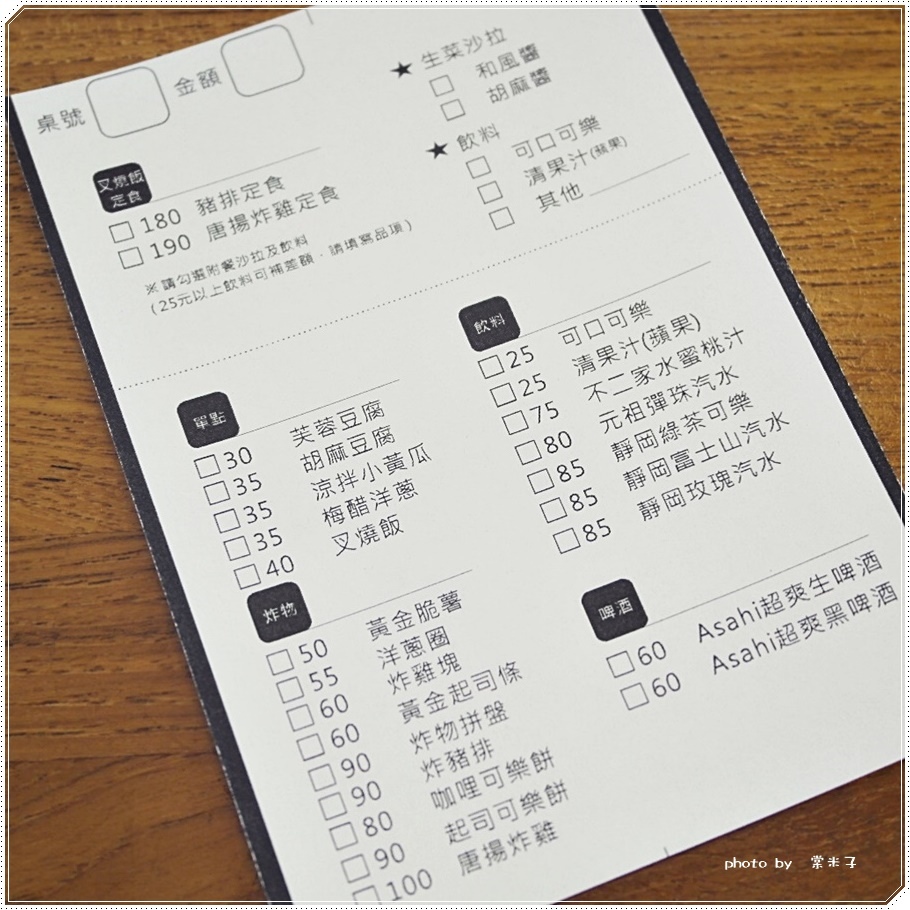 桌號 金額
叉燒飯
定食
180 豬排定食
190 唐揚炸雞定食
※請勾選附餐沙拉及飲料
(25元以上飲料可補差額，請填寫品項)
★ 生菜沙拉
和風醬
胡麻醬
★ 飲料
可口可樂
清果汁(蘋果)
其他
單點
30 芙蓉豆腐
35 胡麻豆腐
35 涼拌小黃瓜
35 梅醋洋蔥
40 叉燒飯
炸物
50 黃金脆薯
55 洋蔥圈
60 炸雞塊
60 黃金起司條
90 炸物拼盤
90 炸豬排
80 咖哩可樂餅
90 起司可樂餅
100 唐揚炸雞
飲料
25 可口可樂
25 清果汁(蘋果)
75 不二家水蜜桃汁
80 元祖彈珠汽水
85 靜岡綠茶可樂
85 靜岡富士山汽水
85 靜岡玫瑰汽水
啤酒
60 Asahi超爽生啤酒
60 Asahi超爽黑啤酒
photo by 棠米子